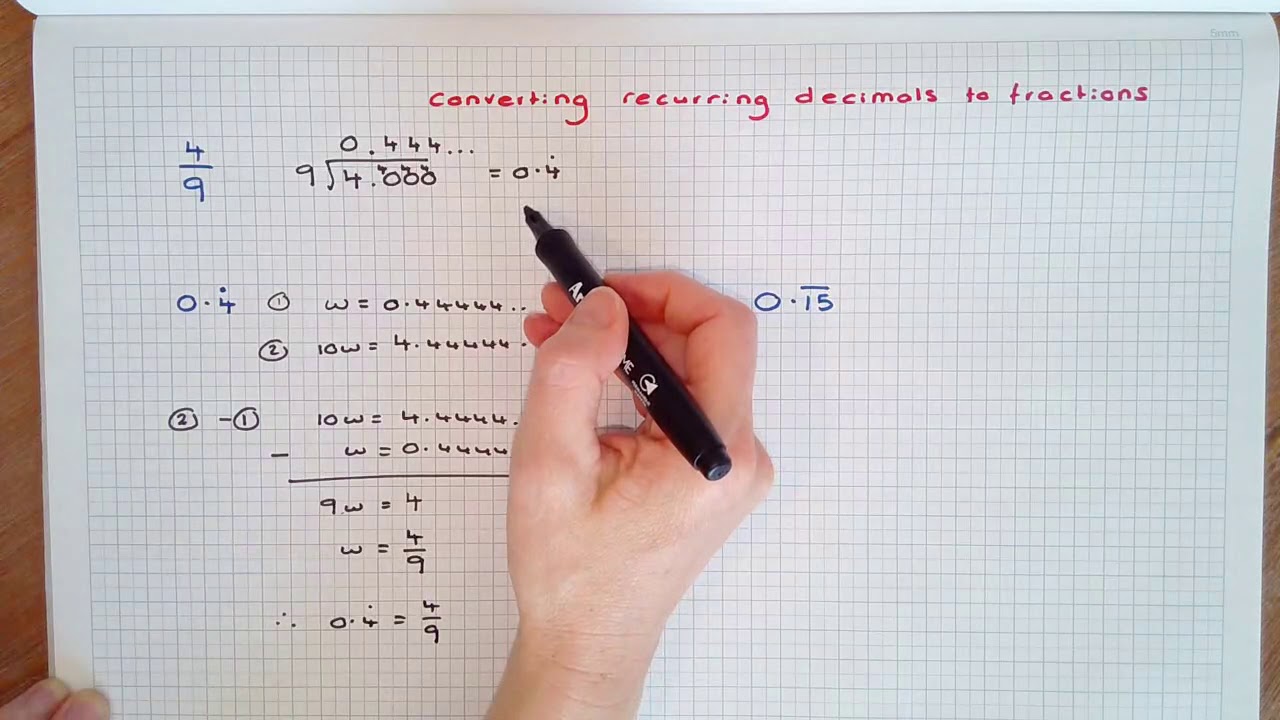 5mm
converting recurring decimals to fractions
4/9 0.444... 9 4.⁴0⁴0⁴0 = 0.4̇
0.4̇ ① w = 0.44444.. 0.1̅5̅
② 10w = 4.44444.
② -① 10w = 4.4444.
- w = 0.4444
9w = 4
w = 4/9
∴ 0.4̇ = 4/9